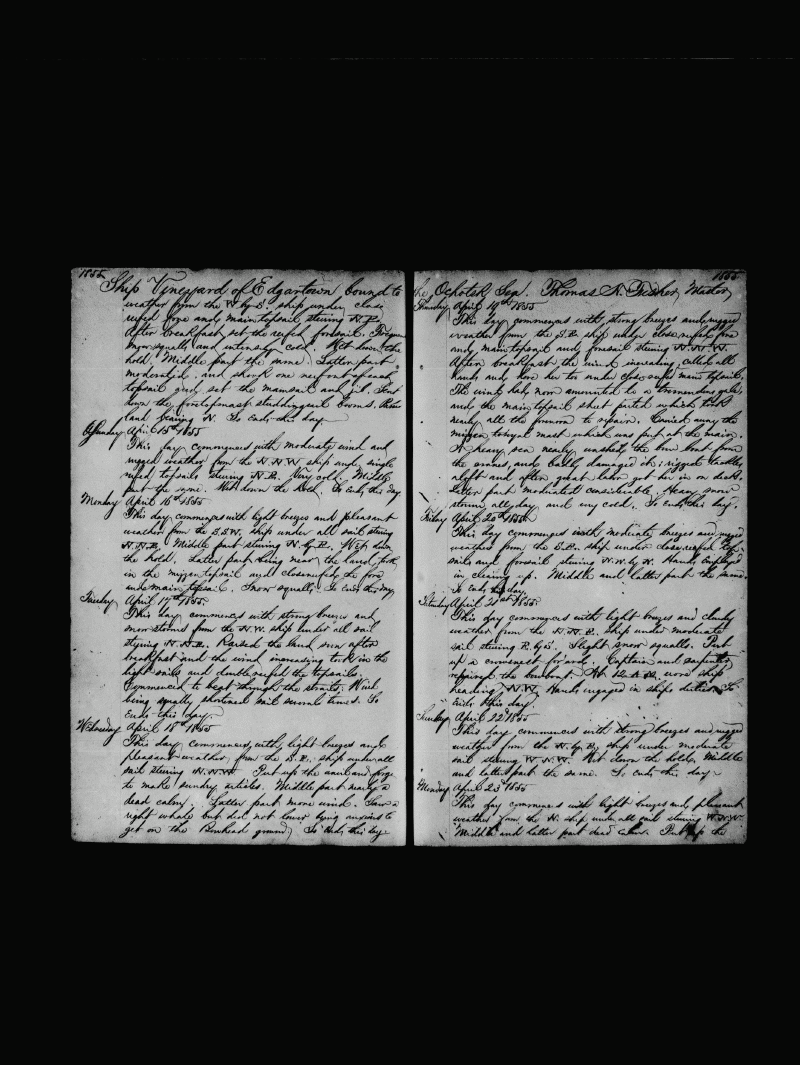 1855
Ship Vineyard of Edgartown bound to
weather from the W by S. ship under close
reefed fore and main topsail stering N.E.
After breakfast set the reefed foresail.
squally and intensely cold. Wet down the
hold. Middle part the same. Latter part
moderated, and shook one reef out of each
topsail and set the mainsail and jib. Sent
down the foretopmast studdingsail booms.
land bearing N. So Ends this day
Sunday April 15th 1855
This day commences with moderate wind and
rugged weather from the N.N.W ship under single
reefed topsails stering N.E. Very cold. Middle
part the same. Wet down the hold. So Ends this day
Monday April 16th 1855
This day commences with light breezes and pleasant
weather from the S.S.W. ship under all sail stering
N.N.E. Middle part stering N. by E. Wet down
the hold. Latter part being near the land, took
in the mizzen topsail and close reefed the fore
and main topsail. Snow squally. So Ends this day
Tuesday April 17th 1855
This day commences with strong breezes and
snow storms from the N.W. ship under all sail
stering N.N.E. Raised the land soon after
breakfast and the wind increasing took in the
light sails and double reefed the topsails.
Commenced to beat through the straits. Wind
being squally shortened sail several times. So
Ends this day
Wednesday April 18th 1855
This day commences with light breezes and
pleasant weather from the S.E. ship under all
sail stering N.W.W. Put up the anvil and forge
to make sundry articles. Middle part nearly a
dead calm. Latter part more wind. Saw a
right whale but did not lower being anxious to
get on the Bowhead ground. So Ends this day
1855
the Ochotsk Sea. Thomas A. Fisher, Master
Thursday April 19th 1855
This day commences with strong breezes and rugged
weather from the S.E. ship under close reefed fore
and main topsail and foresail stering W.N.W
After breakfast the wind increasing, called all
hands and hove her too under close reefed main topsail.
The wind had now amounted to a tremendous gale
and the main topsail sheet parted which took
nearly all the forenoon to repair. Carried away the
mizzen royal mast which was put at the main.
A heavy sea nearly washed the bow boat from
the cranes, and badly damaged it; rigged tackles
aloft and after great labor got her in on deck.
Latter part moderated considerable. Heavy snow
storm all day and very cold. So Ends this day.
Friday April 20th 1855
This day commences with moderate breezes and rugged
weather from the S.E. ship under close reefed top
sails and foresail stering N.W. by N. Hands employed
in clearing up. Middle and latter part the same.
So Ends this day.
Saturday April 21st 1855
This day commences with light breezes and cloudy
weather from the N.N.E. ship under moderate
sail stering E. by S. Slight snow squalls. Put
up a crowsnest forards. Captain and carpenter
repairing the bowboat. At 12 A.M. wore ship
heading N.W. Hands engaged in ships duties. So
Ends this day.
Sunday April 22d 1855
This day commences with strong breezes and rugged
weather from the N. by E. ship under moderate
sail stering W.N.W. Wet down the hold. Middle
and latter part the same. So Ends this day.
Monday April 23d 1855
This day commences with light breezes and pleasant
weather from the N. ship under all sail stering W.N.W.
Middle and latter part dead calm. Put up the